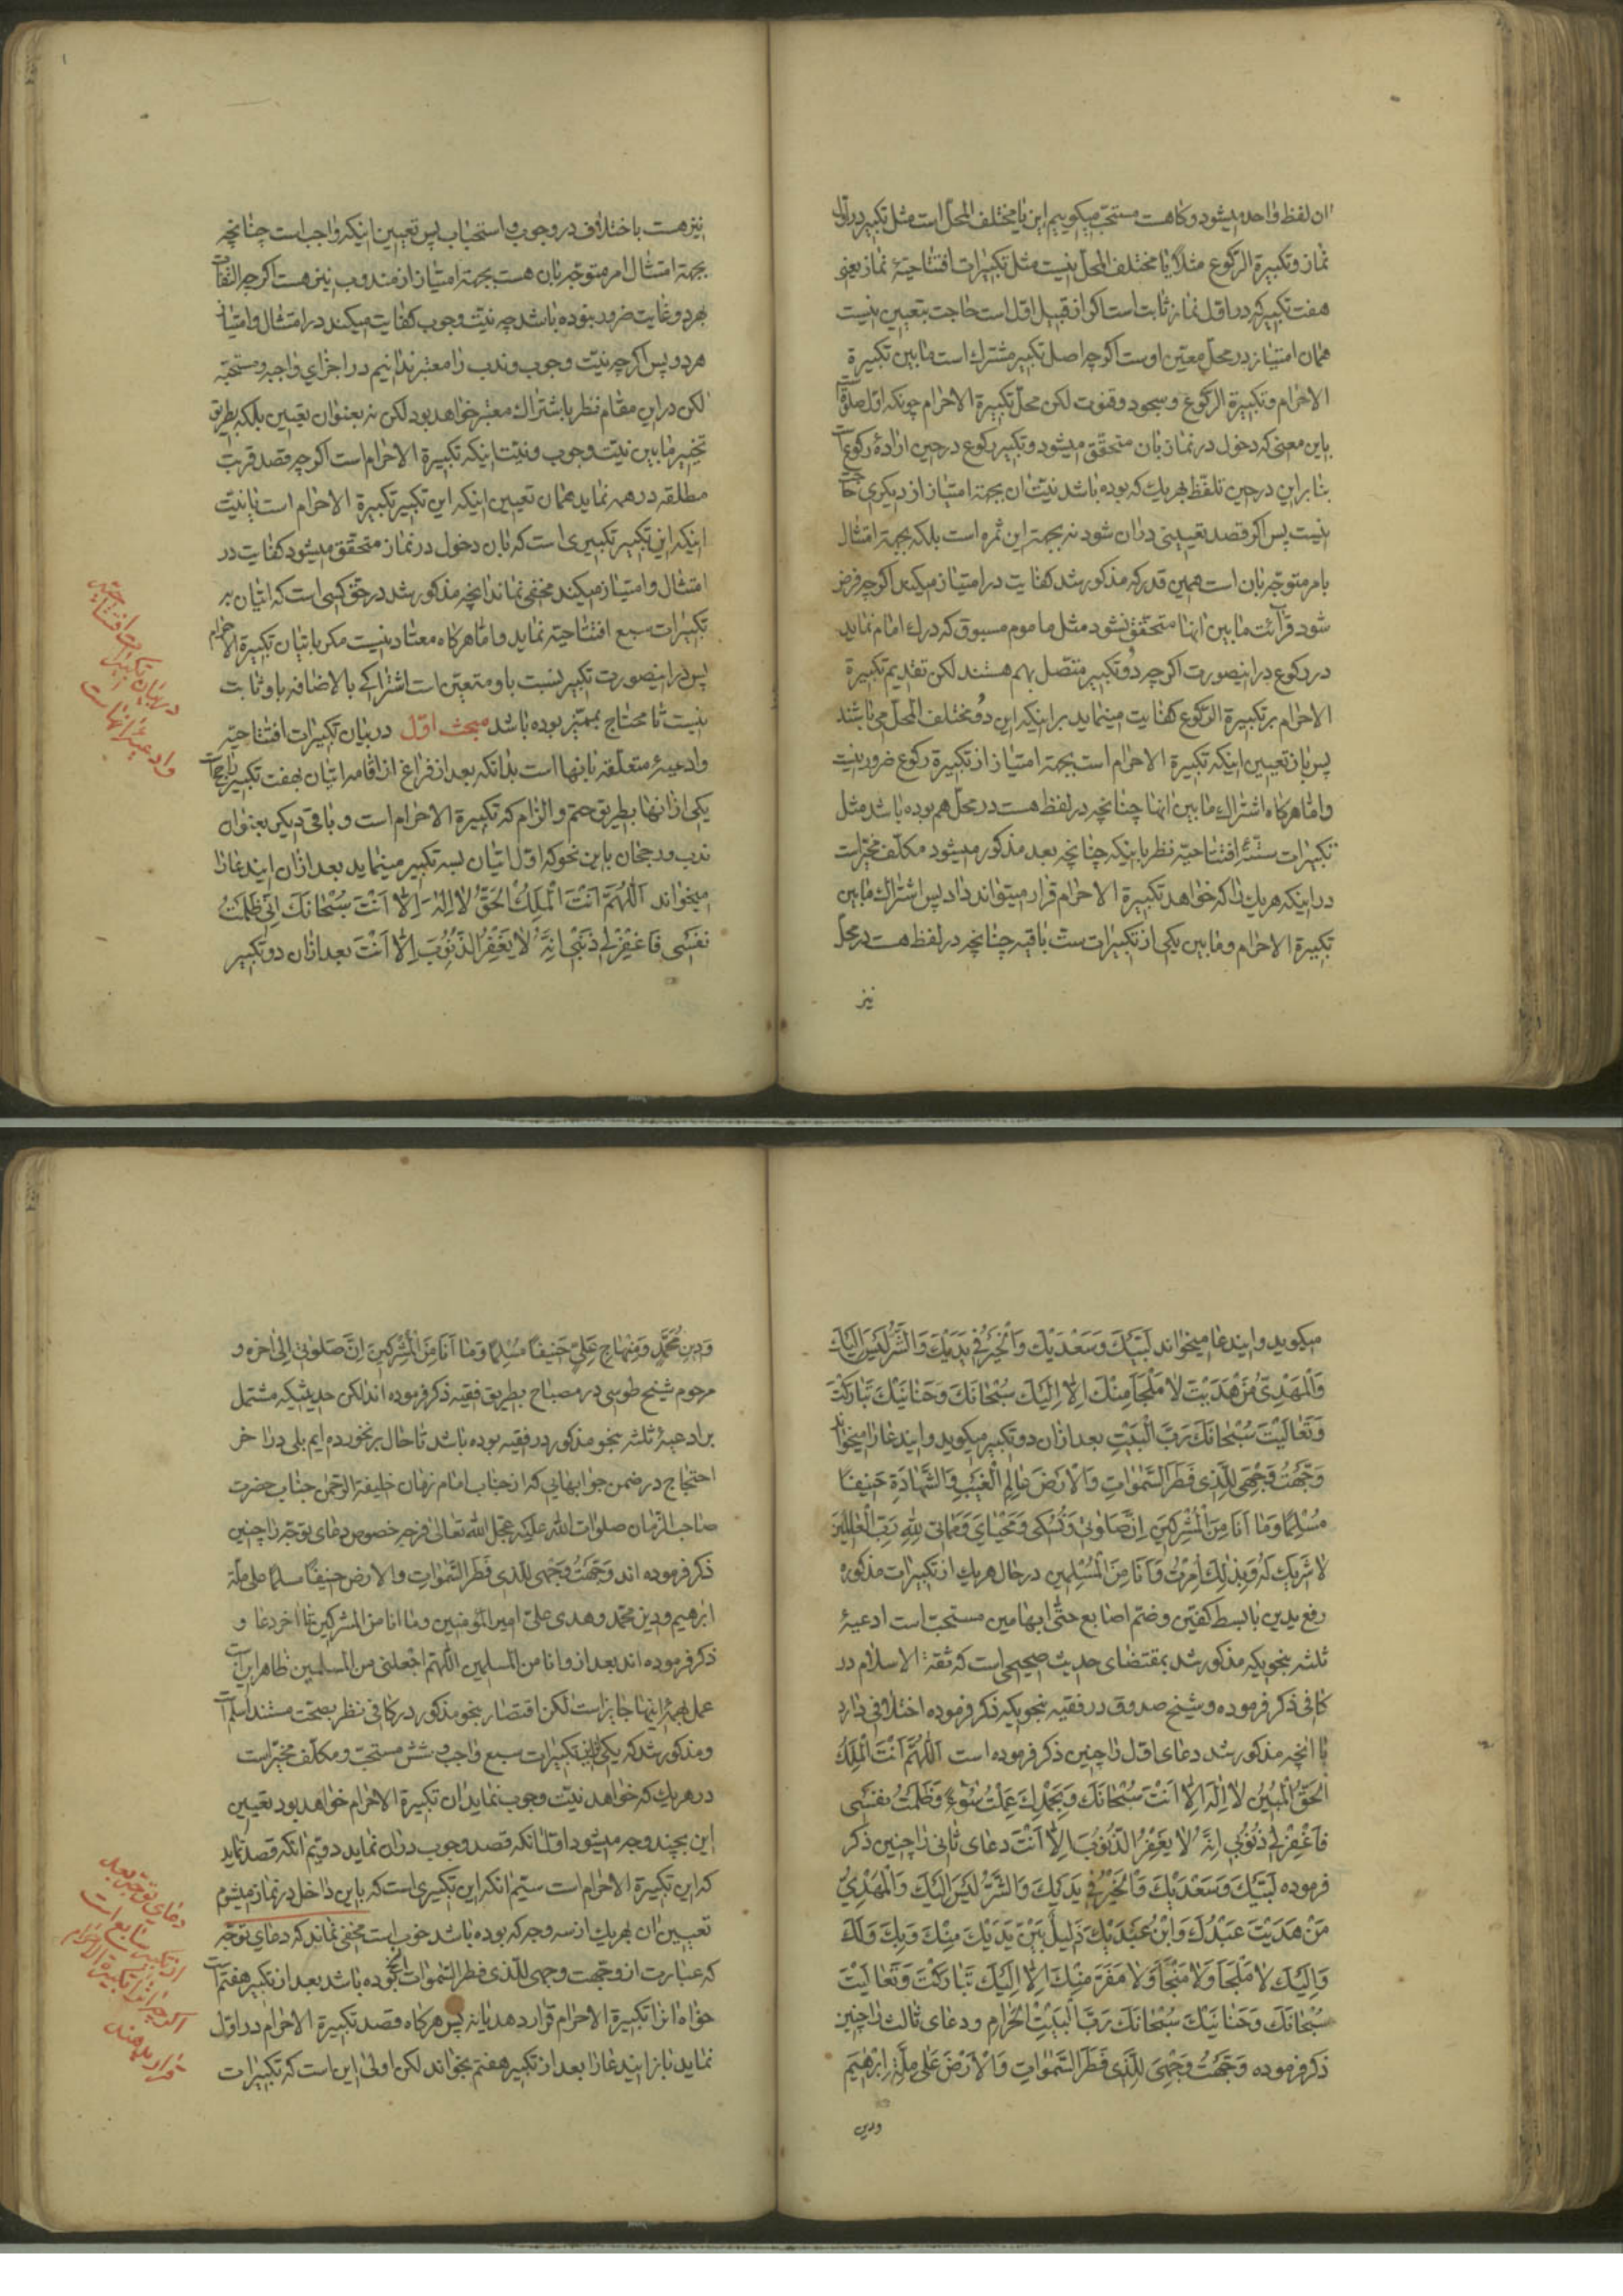 ان لفظ واحد میشود و کاهست مستحب میکوییم این یا مختلف المحل است مثل تکبیر در اول
نماز و تکبیرة الرکوع مثلا یا مختلف المحل نیست مثل تکبیرات افتتاحیهٔ نماز یعنی
هفت تکبیر که در اول نماز ثابت است اکر از قبیل اول است حاجت بتعیین نیست
همان امتیاز در محل معین اوست اکرچه اصل تکبیر مشترک است مابین تکبیرة
الاحرام و تکبیرة الرکوع و سجود و قنوت لکن محل تکبیرة الاحرام چونکه اول صلوة است
باین معنی که دخول در نماز بان متحقق میشود و تکبیر رکوع در حین ارادهٔ رکوع است
بنابراین در حین تلفظ بهریک که بوده باشد نیت ان بجهة امتیاز از دیکری حاجت
نیست پس اکر قصد تعیینی دران شود نه بجهة این ثمره است بلکه بجهة امتثال
بامر متوجه بان است همین قدر که مذکور شد کفایت در امتیاز میکند اکرچه فرض
شود قرائت مابین انها متحقق نشود مثل ماموم مسبوق که درک امام نماید
در رکوع در اینصورت اکرچه دو تکبیر متصل بهم هستند لکن تقدیم تکبیرة
الاحرام بر تکبیرة الرکوع کفایت مینماید بر اینکه این دو مختلف المحل می باشند
پس باز تعیین اینکه تکبیرة الاحرام است بجهة امتیاز از تکبیرة رکوع ضرور نیست
و اما هرکاه اشتراک مابین انها چنانچه در لفظ هست در محل هم بوده باشد مثل
تکبیرات ستهٔ افتتاحیه نظر باینکه چنانچه بعد مذکور میشود مکلف مخیر است
در اینکه هر یک را که خواهد تکبیرة الاحرام قرار میتواند داد پس اشتراک مابین
تکبیرة الاحرام و مابین یکی از تکبیرات ست باقیه چنانچه در لفظ هست در محل
نیز
نیز هست با اختلاف در وجوب و استحباب پس تعیین اینکه واجب است چنانچه
بجهة امتثال امر متوجه بان هست بجهة امتیاز از مندوب نیز هست اکرچه التفات
بهر دو غایت ضرور نبوده باشد چه نیت وجوب کفایت میکند در امتثال و امتیاز
هر دو پس اکرچه نیت وجوب و ندب را معتبر ندانیم در اجزای واجبه و مستحبه
لکن در این مقام نظر باشتراک معتبر خواهد بود لکن نه بعنوان تعیین بلکه بطریق
تخییر مابین نیت وجوب و نیت اینکه تکبیرة الاحرام است اکرچه قصد قربت
مطلقه در همه نماید همان تعیین اینکه این تکبیر تکبیرة الاحرام است یا نیت
اینکه این تکبیر تکبیری است که بان دخول در نماز متحقق میشود کفایت در
امتثال و امتیاز میکند مخفی نماند انچه مذکور شد در حق کسی است که اتیان بر
تکبیرات سبع افتتاحیه نماید و اما هرکاه معتاد نیست مکر باتیان تکبیرة الاحرام
پس در اینصورت تکبیر نسبت باو متعین است اشتراکی بالاضافه باو ثابت
نیست تا محتاج بممیز بوده باشد مبحث اول در بیان تکبیرات افتتاحیه
و ادعیهٔ متعلقه بانها است بدانکه بعد از فراغ از اقامه اتیان بهفت تکبیر راجح است
یکی از انها بطریق حتم و الزام که تکبیرة الاحرام است و باقی دیکر بعنوان
ندب و رجحان باین نحو که اول اتیان بسه تکبیر مینماید بعد ازان ایندعا را
میخواند اَللّٰهُمَّ اَنْتَ الْمَلِكُ الحَقُّ لٰا اِلٰهَ اِلّٰا اَنْتَ سُبْحٰانَكَ اِنّی ظَلَمْتُ
نَفْسی فَاغْفِرْ لی ذَنْبی اِنَّهُ لٰا یَغْفِرُ الذُّنُوبَ اِلّٰا اَنْتَ بعد ازان دو تکبیر
در بیان تکبیرات افتتاحیه
وادعیه انهاست
میکوید و ایندعا میخواند لَبَّیْكَ وَسَعْدَیْكَ وَالْخَیْرُ فی یَدَیْكَ وَالشَّرُّ لَیْسَ اِلَیْكَ
وَالْمَهْدِیُّ مَنْ هَدَیْتَ لٰا مَلْجَأَ مِنْكَ اِلّٰا اِلَیْكَ سُبْحٰانَكَ وَحَنٰانَیْكَ تَبٰارَكْتَ
وَتَعٰالَیْتَ سُبْحٰانَكَ رَبَّ الْبَیْتِ بعد ازان دو تکبیر میکوید و ایندعا را میخواند
وَجَّهْتُ وَجْهِیَ لِلَّذی فَطَرَ السَّمٰوٰاتِ وَالْاَرْضَ عٰالِمِ الْغَیْبِ وَالشَّهٰادَةِ حَنیفًا
مُسْلِمًا وَمٰا اَنَا مِنَ الْمُشْرِکینَ اِنَّ صَلٰوتی وَنُسُکی وَمَحْیٰایَ وَمَمٰاتی لِلّٰهِ رَبِّ الْعٰالَمینَ
لٰا شَریكَ لَهُ وَبِذٰلِكَ اُمِرْتُ وَاَنَا مِنَ الْمُسْلِمینَ در حال هر یک از تکبیرات مذکوره
رفع یدین با بسط کفین و ضم اصابع حتی ابهامین مستحب است ادعیهٔ
ثلثه بنحویکه مذکور شد بمقتضای حدیث صحیحی است که ثقة الاسلام در
کافی ذکر فرموده و شیخ صدوق در فقیه بنحویکه ذکر فرموده اختلافی دارد
با انچه مذکور شد دعای اول را چنین ذکر فرموده است اَللّٰهُمَّ اَنْتَ الْمَلِكُ
الْحَقُّ الْمُبینُ لٰا اِلٰهَ اِلّٰا اَنْتَ سُبْحٰانَكَ وَبِحَمْدِكَ عَمِلْتُ سُوْءً وَظَلَمْتُ نَفْسی
فَاغْفِرْ لی ذُنُوبی اِنَّهُ لٰا یَغْفِرُ الذُّنُوبَ اِلّٰا اَنْتَ دعای ثانی را چنین ذکر
فرموده لَبَّیْكَ وَسَعْدَیْكَ وَالْخَیْرُ فی یَدَیْكَ وَالشَّرُّ لَیْسَ اِلَیْكَ وَالْمَهْدِیُّ
مَنْ هَدَیْتَ عَبْدُكَ وَابْنُ عَبْدَیْكَ ذَلیلٌ بَیْنَ یَدَیْكَ مِنْكَ وَبِكَ وَلَكَ
وَاِلَیْكَ لٰا مَلْجَأَ وَلٰا مَنْجٰا وَلٰا مَفَرَّ مِنْكَ اِلّٰا اِلَیْكَ تَبٰارَكْتَ وَتَعٰالَیْتَ
سُبْحٰانَكَ وَحَنٰانَیْكَ سُبْحٰانَكَ رَبَّ الْبَیْتِ الْحَرٰامِ و دعای ثالث را چنین
ذکر فرموده وَجَّهْتُ وَجْهِیَ لِلَّذی فَطَرَ السَّمٰوٰاتِ وَالْاَرْضَ عَلٰی مِلَّةِ اِبْرٰهیمَ
ودین
وَدینِ مُحَمَّدٍ وَمِنْهٰاجِ عَلِیٍّ حَنیفًا مُسْلِمًا وَمٰا اَنَا مِنَ الْمُشْرِکینَ اِنَّ صَلٰوتی الی اخره و
مرحوم شیخ طوسی در مصباح بطریق فقیه ذکر فرموده اند لکن حدیثیکه مشتمل
بر ادعیهٔ ثلثه بنحو مذکور در فقیه بوده باشد تا حال برنخورده ایم بلی در اخر
احتجاج در ضمن جوابهایی که از جناب امام زمان خلیفة الرحمن جناب حضرت
صاحب الزمان صلوات الله علیه عجل الله تعالی فرجه خصوص دعای توجه را چنین
ذکر فرموده اند وَجَّهْتُ وَجْهِیَ لِلَّذی فَطَرَ السَّمٰوٰاتِ والارض حنیفًا مسلما علی ملة
ابرهیم ودین محمد وهدی علی امیر المؤمنین وما انا من المشرکین تا اخر دعا و
ذکر فرموده اند بعد از وانا من المسلمین اللّٰهم اجعلنی من المسلمین ظاهر این است
عمل بهمهٔ اینها جایز است لکن اقتصار بنحو مذکور در کافی نظر بصحت مستند اسلم است
و مذکور شد که یکی از این تکبیرات سبع واجب و شش مستحب و مکلف مخیر است
در هر یک که خواهد نیت وجوب نماید ان تکبیرة الاحرام خواهد بود تعیین
این بچند وجه میشود اول انکه قصد وجوب دران نماید دویم انکه قصد نماید
که این تکبیرة الاحرام است سیّم انکه این تکبیری است که باین داخل در نماز میشوم
تعیین ان بهریک از سه وجه که بوده باشد خوب است مخفی نماند که دعای توجه
که عبارت از وجهت وجهی للّذی فطر السّموات الخ بوده باشد بعد از تکبیر هفتم است
خواه انرا تکبیرة الاحرام قرار دهد یا نه پس هرکاه قصد تکبیرة الاحرام در اول
نماید باز ایندعا را بعد از تکبیر هفتم بخواند لکن اولی این است که تکبیرات
دعای توجه بعد
از تکبیر سابع است
اکرچه انرا تکبیرة الاحرام
قرار ندهند